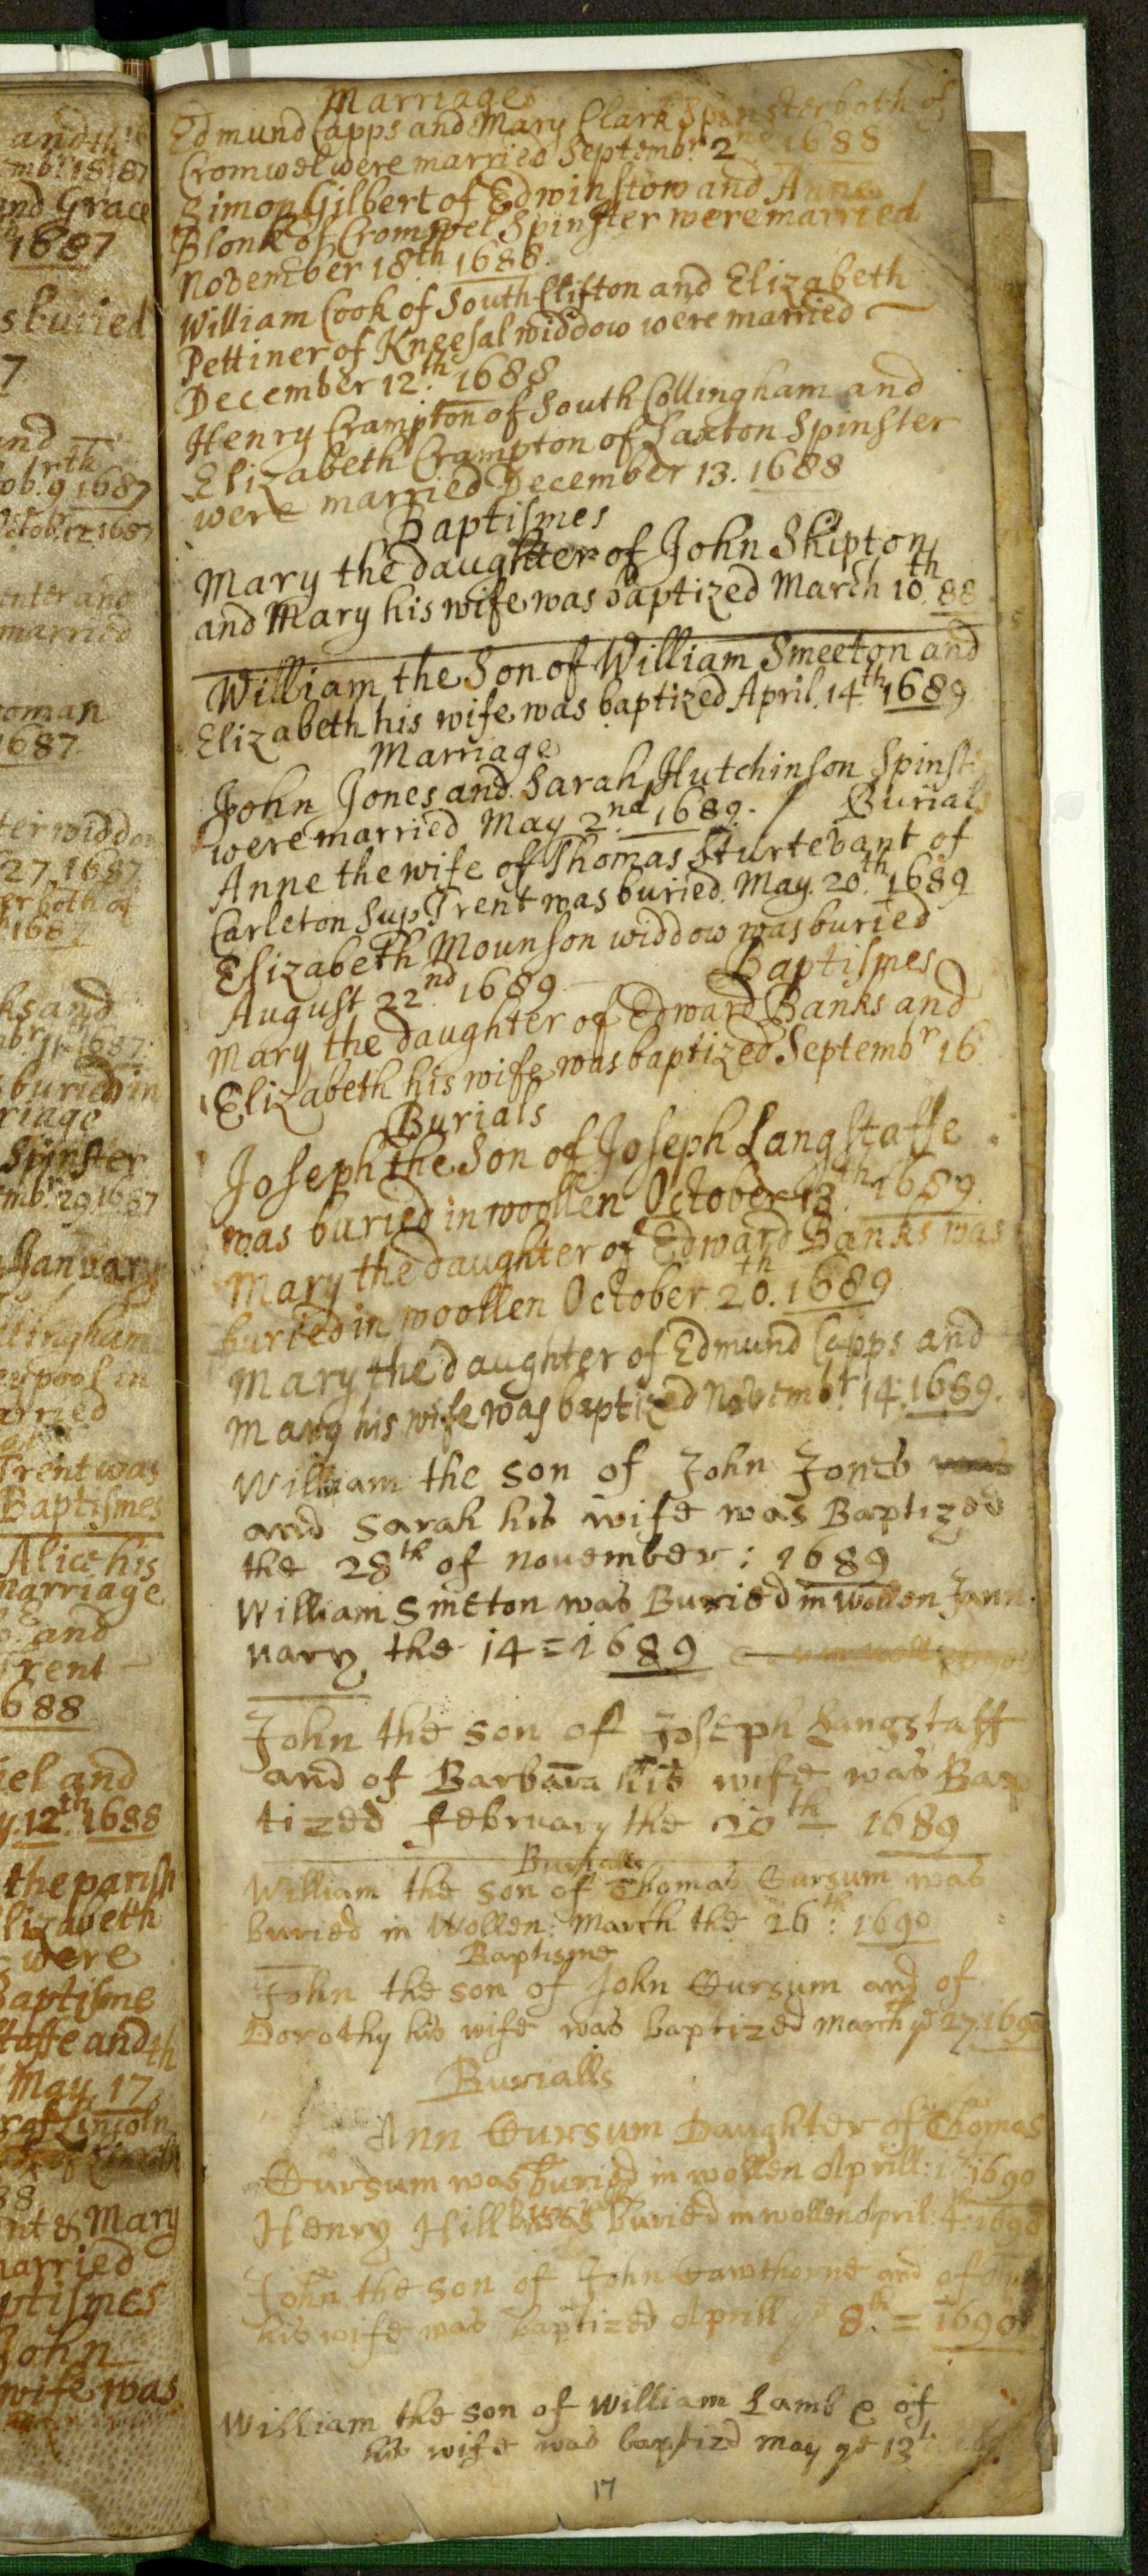 and th
mbr 18 87
and Grace
1687
s buried
7
and
ob. 9th 1687
October 12 1687
enter and
married
oman
1687
ter widdow
27 1687
er both of
1687
ks and
mbr 11th 1687
buried in
riage
Spinster
mbr 29 1687
January
llingham
pool in
arried
Trent was
Baptismes
Alice his
marriage
and
Trent
1688
iel and
y 12th 1688
the parish
Elizabeth
were
Baptisme
staffe and
May 17th
r of Lincoln
88
nt & Mary
married
ptismes
John
wife was
Marriages
Edmund Capps and Mary Clark Spinster both of
Cromwel were married Septembr 2nd 1688
Simon Gilbert of Edwinstow and Anne
Blonk of Cromwel Spinster were married
November 18th 1688.
William Cook of South Clifton and Elizabeth
Pettiner of Kneesal widdow were married
December 12th 1688
Henry Crampton of South Collingham and
Elizabeth Crampton of Laxton Spinster
were married December 13. 1688
Baptismes
Mary the daughter of John Shipton
and Mary his wife was baptized March 10th 88
William the Son of William Smeeton and
Elizabeth his wife was baptized April 14th 1689
Marriage
John Jones and Sarah Hutchinson Spinst
were married May 2nd 1689. / Burials
Anne the wife of Thomas Sturtevant of
Carleton Sup Trent was buried May 20th 1689
Elizabeth Mounson widdow was buried
August 22nd 1689
Baptismes
Mary the daughter of Edward Banks and
Elizabeth his wife was baptized Septembr 16
Burials
Joseph the Son of Joseph Langstaffe
was buried in woollen October 13th 1689.
Mary the daughter of Edward Banks was
buried in woollen October 20th. 1689
Mary the daughter of Edmund Capps and
Mary his wife was baptized Novembr 14. 1689.
William the son of John Jones was
and Sarah his wife was Baptized
the 28th of november: 1689
William Smeton was Buried in Wollen Jann
uary the 14 = 1689
John the son of Joseph Langstaff
and of Barbara his wife was Bap
tized february the 20th 1689
Burialls
William the son of Thomas Cursum was
buried in Wollen: March the 26th: 1690
Baptisme
John the son of John Cursum and of
Dorothy his wife was baptized March ye 27: 1690
Burialls
Ann Cursum Daughter of Thomas
Cursum was Buried in wollen Aprill: 1st 1690
Henry Hill was Buried in wollen April: 4th 1690
John the son of John Cawthorne and of
his wife was baptized Aprill ye 8th = 1690
William the son of William Lamb & of
his wife was baptizd may ye 13th
17